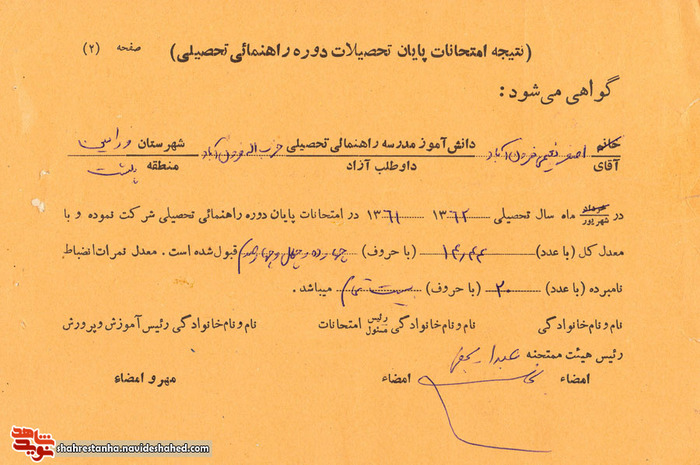 (نتیجه امتحانات پایان تحصیلات دوره راهنمائی تحصیلی) صفحه (۲)
گواهی می‌شود:
خانم اصغر نعیمی فرون آباد دانش‌آموز مدرسه راهنمائی تحصیلی حزب اله فرون آباد شهرستان ورامین
آقای داوطلب آزاد منطقه پلشت
در خرداد شهریور ماه سال تحصیلی ۱۳۶۲ - ۱۳۶۱ در امتحانات پایان دوره راهنمائی تحصیلی شرکت نموده و با
معدل کل (با عدد) ۱۴٫۴۴ (با حروف) چهارده و چهل و چهار صدم قبول شده است. معدل نمرات انضباط
نامبرده (با عدد) ۲۰ (با حروف) بیست تمام میباشد.
نام و نام خانوادگی نام و نام خانوادگی رئیس مسئول امتحانات نام و نام خانوادگی رئیس آموزش و پرورش
رئیس هیئت ممتحنه
امضاء امضاء مهر و امضاء
نوید شاهد
shahrestanha.navideshahed.com